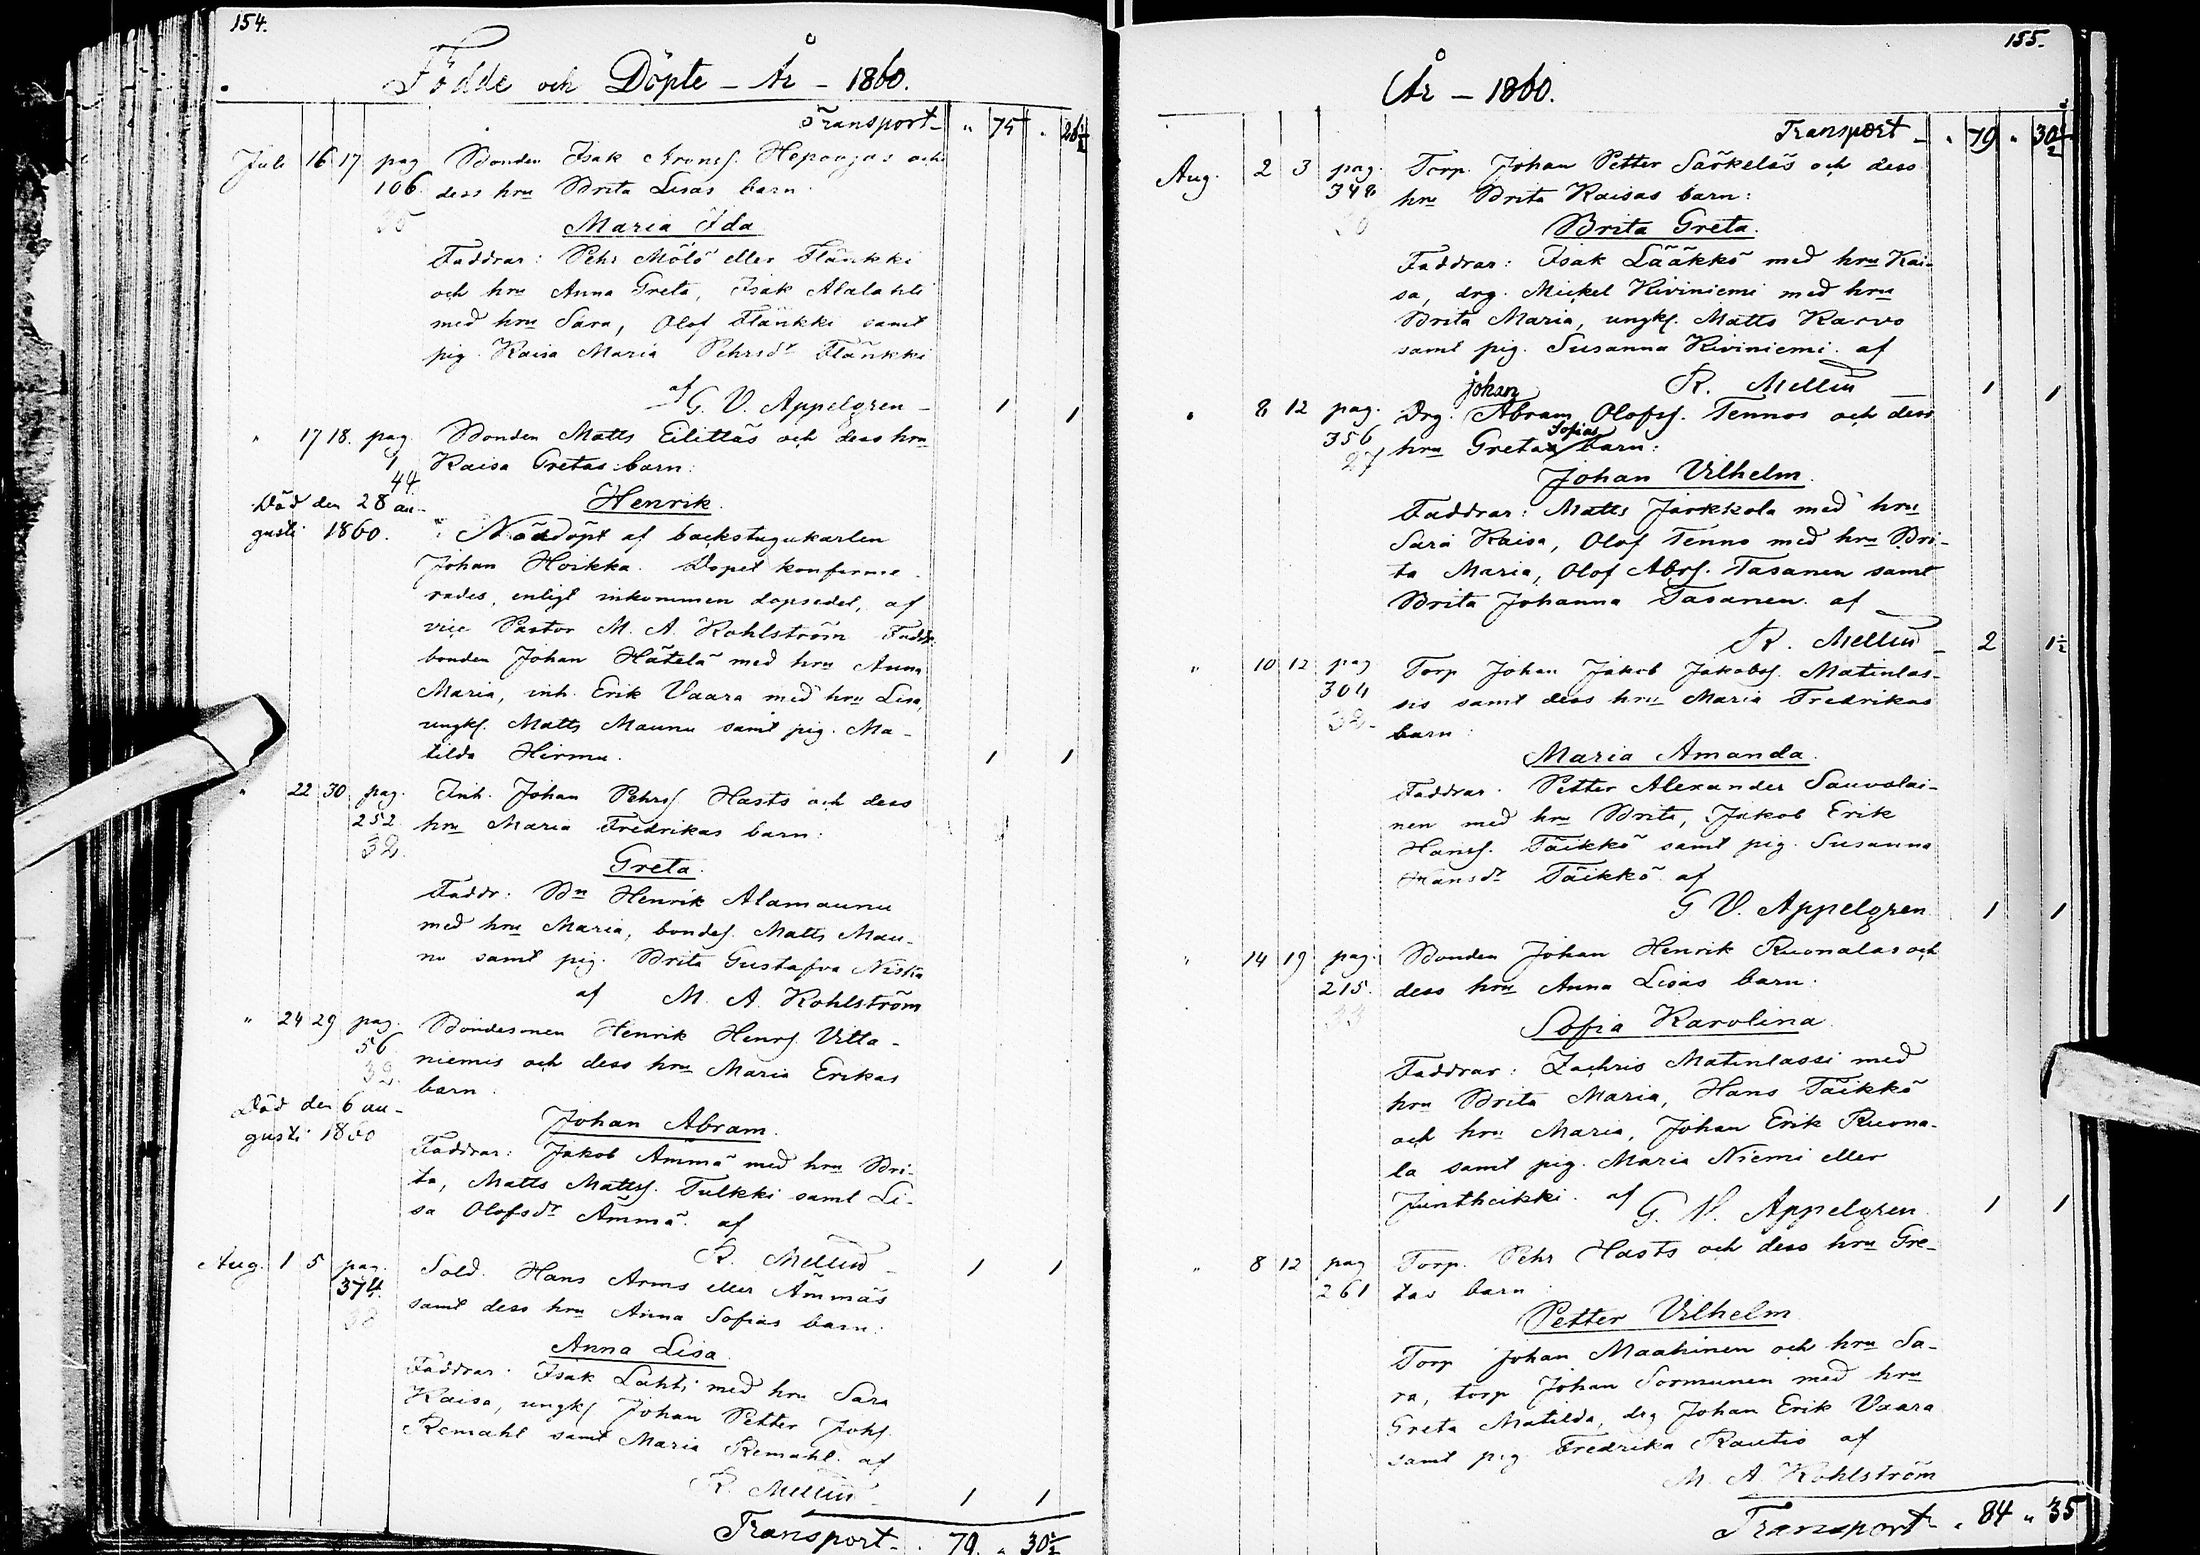 154.
Födde och Döpte - År - 1860.
Transport - " 75 " 26½
Juli 16 17 pag. Bonden Isak Aronss. Heponjas och
106. dess hru Brita Lisas barn.
35 Maria Ida
Faddrar: Pehr Mölö eller Flänkki
och hru Anna Greta, Isak Alalahti
med hru Sara, Olof Flänkki samt
pig. Kaisa Maria Pehrsdr Flänkki
af G. V. Appelgren - 1 1
" 17 18. pag. Bonden Matts Eilittäs och dess hru
1 Kaisa Gretas barn:
44.
Död den 28 au- Henrik.
gusti 1860. Nöddöpt af backstugukarlen
Johan Hoikka. Dopet konfirme-
rades, enligt inkommen dopsedel, af
vice Pastor M. A. Kohlström Faddr:
bonden Johan Hätelä med hru Anna
Maria, inh. Erik Vaara med hru Lisa,
ungk. Matts Maunu samt pig. Ma-
tilda Hirmu. 1 1
" 22 30 pag. Inh. Johan Pehrss. Hasts och dess
252 hru Maria Fredrikas barn:
32.
Greta.
Faddr: Bn Henrik Alamaunu
med hru Maria, bondes. Matts Mau-
nu samt pig. Brita Gustafva Niska
af M. A. Kohlström
" 24 29 pag. Bondesonen Henrik Henrs. Vitta-
56 niemis och dess hru Maria Erikas
32. barn
Död den 6 au- Johan Abram.
gusti 1860 Faddrar: Jakob Ämmä med hru Bri-
ta, Matts Mattss. Tulkki samt Li-
sa Olofsdr Ämmä. af
R. Mellin - 1 1
Aug. 1 5 pag. Sold. Hans Arms eller Ämmäs
374. samt dess hru Anna Sofias barn:
Anna Lisa
Faddrar: Isak Lahti med hru Sara
Kaisa, ungk. Johan Petter Johs.
Remahl samt Maria Remahl. af
R. Mellin - 1 1
Transport - . 79. " 30½
155.
År - 1860.
Transport - " 79 " 30½
Aug. 2 3 pag. Torp. Johan Petter Särkeläs och dess
348 hru Brita Kaisas barn:
Brita Greta.
Faddrar: Isak Lääkkö med hru Kai-
sa, drg. Mickel Kiviniemi med hru
Brita Maria, ungk. Matts Karvo
samt pig. Susanna Kiviniemi. af
R. Mellin - 1 1
johan
" 8 12 pag. Drg. Abram Olofss. Tennos och dess
Sofias
356 hru Gretas barn:
27
Johan Vilhelm.
Faddrar: Matts Jarkkola med hru
Sara Kaisa, Olof Tenno med hru Bri-
ta Maria, Olof Abrs. Tasanen samt
Brita Johanna Tasanen. af
R. Mellin - 2 1½
" 10 12 pag. Torp. Johan Jakob Jakobss. Matinlas-
304 sis samt dess hru Maria Fredrikas
barn:
Maria Amanda.
Faddrar. Petter Alexander Sauvolai-
nen med hru Brita, Jakob Erik
Hanss. Täikkö samt pig. Susanna
Hansdr Täikkö. af
G. V. Appelgren 1 1
" 14 19 pag. Bonden Johan Henrik Ruonalas och
215. dess hru Anna Lisas barn:
Sofia Karolina.
Faddrar: Zachris Matinlassi med
hru Brita Maria, Hans Täikkö
och hru Maria, Johan Erik Ruona-
la samt pig. Maria Niemi eller
Juntheikki. af G. V. Appelgren 1 1
" 8 12 pag. Torp. Pehr Hasts och dess hru Gre-
261 tas barn
Petter Vilhelm
Torp Johan Maakinen och hru Sa-
ra, torp Johan Sormunen med hru
Greta Matilda, drg Johan Erik Vaara
samt pig. Fredrika Rautio af
M. A. Kohlström
Transport - " 84 " 35